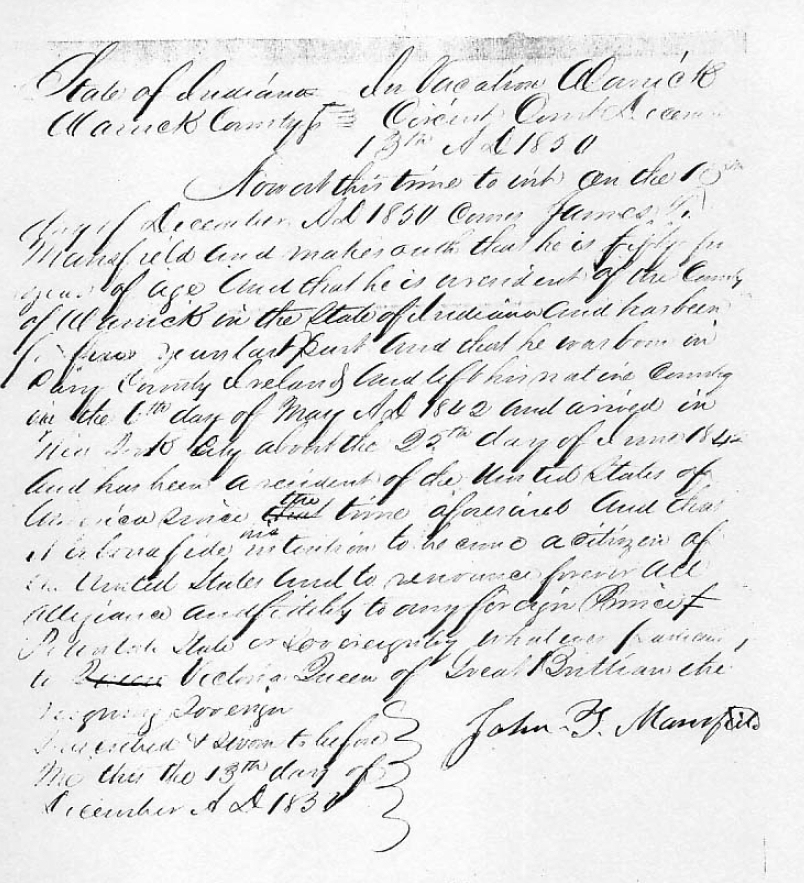 State of Indiana In Vacation Warrick
Warrick County Circuit Court
13th A D 1850
Now at this time to wit on the
day of December A D 1850 Comes James
Mansfield and makes oath that he is fifty
years of age And that he is a resident of the County
of Warrick in the State of Indiana And has been
years last past And that he was born in
County Ireland And left his native Country
on the 6th day of May A D 1842 and arived in
New York City about the 25th day of June 184
And has been a resident of the United States of
America since the time aforesaid And that
it is bonafide his intention to become a citizen of
the United States And to renounce forever all
allegiance and fidelity to any foreign Prince
Potentate State or Sovereignty whatever
to Victoria Queen of Great Brittian the
reigning Soverign
Subscribed & sworn to before John F. Mansfield
Me this the 13th day of
December A D 1850